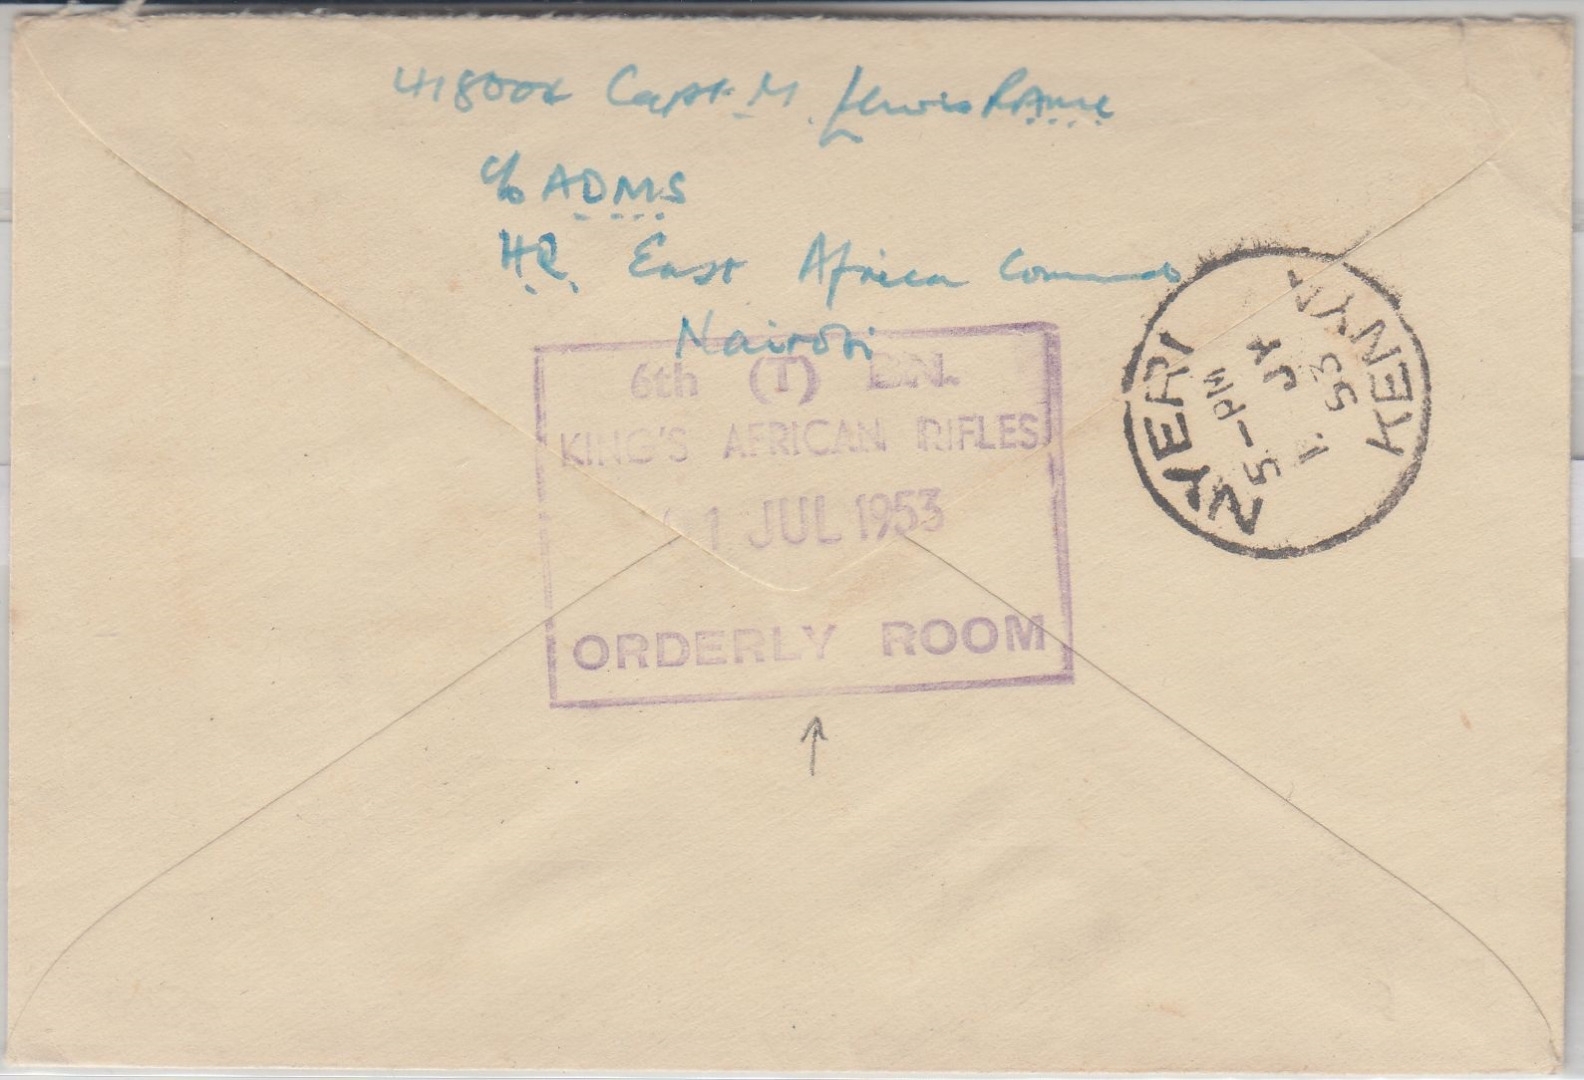 Capt. M. Lewis RAMC
c/o ADMS
HQ. East Africa Command
Nairobi
6th (T) BN.
KING'S AFRICAN RIFLES
1 JUL 1953
ORDERLY ROOM
NYERI
5-PM
1 JY
53
KENYA